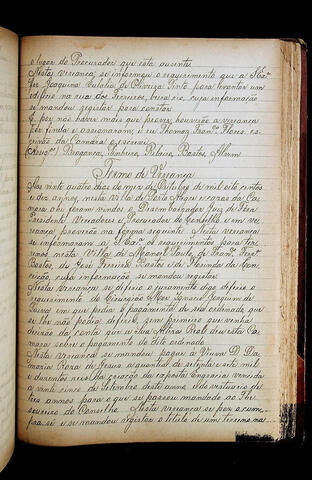 o logar do Procurador que está ausente
Nesta vereança se informou o requerimento que a
Joaquina Eulalia de Oliveira Pinto para levantar um
edificio na rua dos Ferreiros, cuja informação
se mandou registar para constar
E por não haver mais que prover, houverão a vereança
por finda e assignaram, e eu Thomaz Flores es-
crivão da Camara o escrevi
Bragança, Ribeiro, Bastos,
Termo de Vereança
Aos vinte quatro dias do mez de Outubro de mil oito centos
e dez annos, nesta Villa de Porto Alegre e cazas da Ca-
mara ahi foram vindos o Desembargador Juiz de Fóra
Presidente Vereadores e Procurador do Conselho e em ve-
reança proverão na forma seguinte Nesta vereança
se informaram os requerimentos para ter-
renos nesta Villa de Manoel Paulo de
Bastos, de José Ferreira Bastos e de Florinda da Con-
ceição, cuja informação se mandou registar
Nesta vereança se deferio o juramento digo deferio o
requerimento do Cirurgião Mor Ignacio Joaquim de
Paiva em que pedia o pagamento de seo ordenado que
se lhe não podia deferir sem primeiro que venha
decizão da Conta que a Sua Alteza Real deu esta Ca-
mara sobre o pagamento do dito ordenado
Nesta vereança se mandou pagar a Viuva D. Da-
mazia Roza de Jesus a quantia de setenta e sete mil
e duzentos reis da criação da exposta Engracia vencidos
a vinte cinco de Setembro deste anno, e do vestuario de
tres annos para o que se passou mandado ao The-
soureiro do Conselho Nesta vereança se poz o cum-
pra-se e se mandou registar o titulo de um terreno na